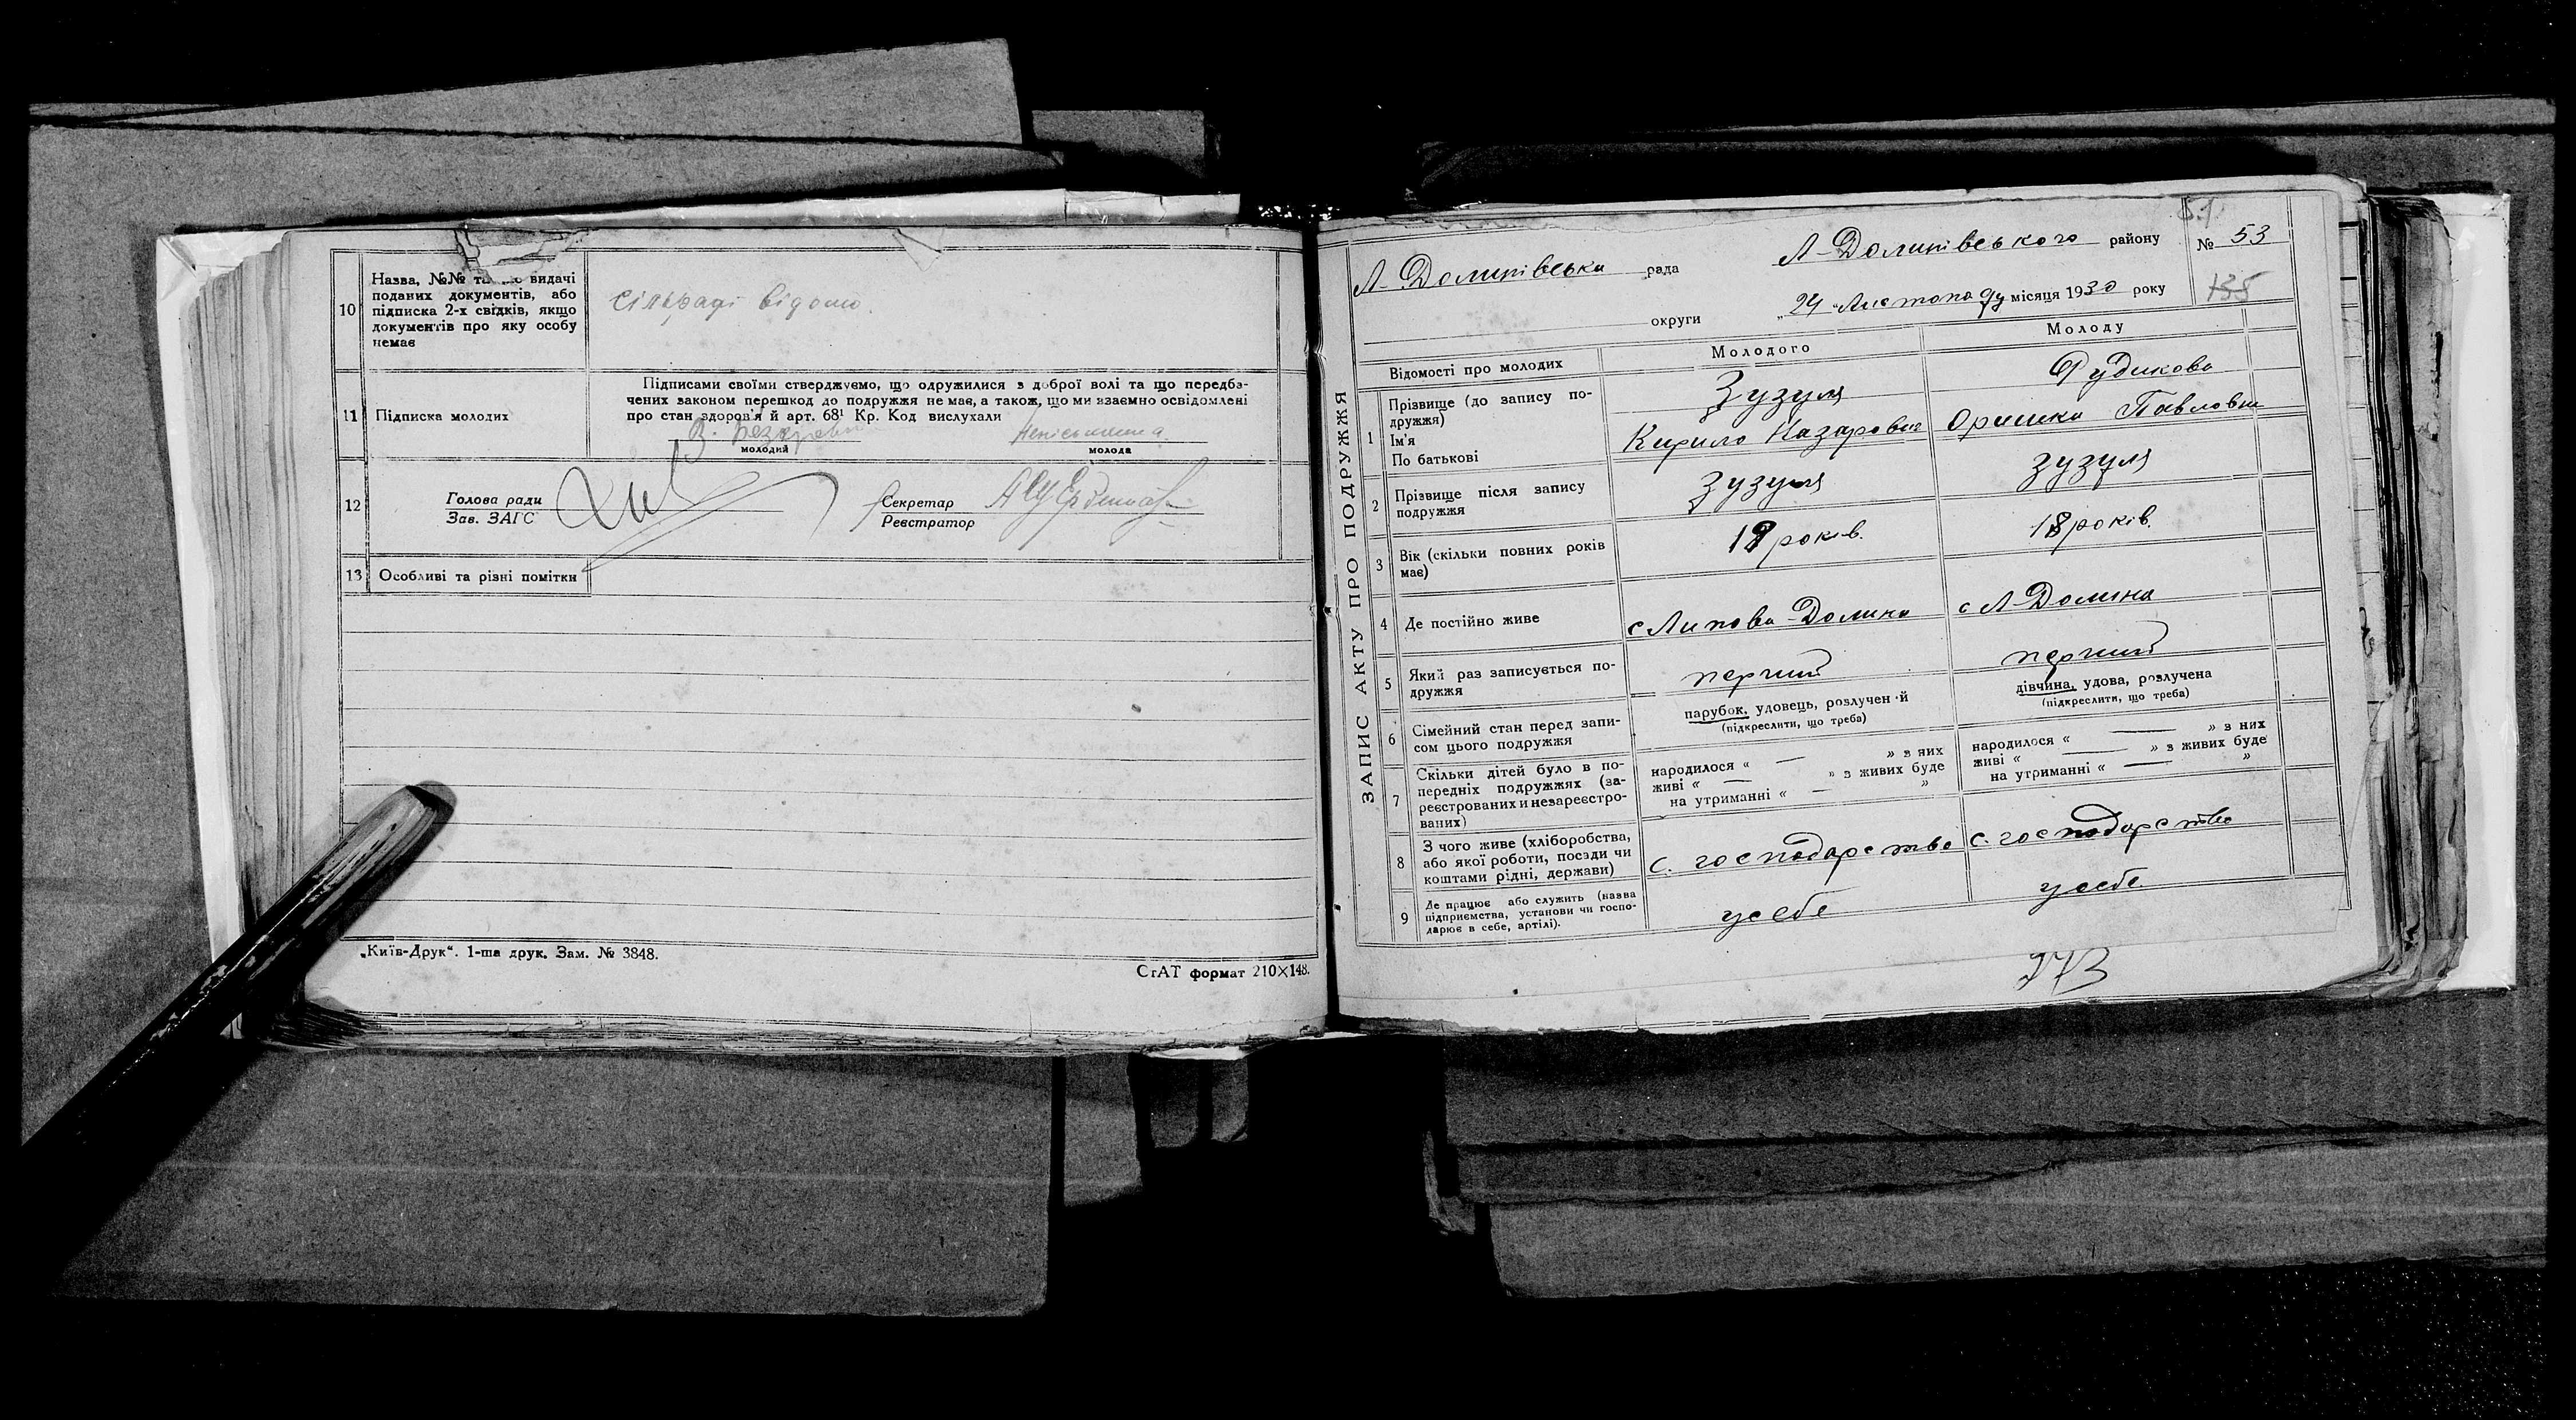 10
Назва, №№ та видачі
поданих документів, або
підписка 2-х свідків, якщо
документів про яку особу
немає
сільраді відомо.
11
Підписка молодих
Підписами своїми стверджуємо, що одружилися з доброї волі та що передба-
чених законом перешкод до подружжя не має, а також, що ми взаємно освідомлені
про стан здоров'я й арт. 68¹ Кр. Код вислухали
неписьменна
молодий
молода
12
Голова ради
Зав. ЗАГС
Секретар
Реєстратор
13
Особливі та різні помітки
„Київ-Друк“. 1-ша друк. Зам. № 3848.
СтАТ формат 210×148.
ЗАПИС АКТУ ПРО ПОДРУЖЖЯ
Л-Долинівська рада
Л-Долинівського району
№ 53
135
округи
„24 „Листопаду місяця 1930 року
Відомості про молодих
Молодого
Молоду
1
Прізвище (до запису по-
дружжя)
Ім'я
По батькові
Зузуля
Кирило Назарович
Рудикова
Оришка Павловна
2
Прізвище після запису
подружжя
Зузуля
Зузуля
3
Вік (скільки повних років
має)
19 років.
18 років.
4
Де постійно живе
с Липова-Долина
с Л-Долина
5
Який раз записується по-
дружжя
перший
перший
6
Сімейний стан перед запи-
сом цього подружжя
парубок, удовець, розлучений
(підкреслити, що треба)
дівчина, удова, розлучена
(підкреслити, що треба)
7
Скільки дітей було в по-
передніх подружжях (за-
реєстрованих и незареєстро-
ваних)
народилося « — » з них
живі « — » з живих буде
на утриманні « — »
народилося « — » з них
живі « — » з живих буде
на утриманні « — »
8
З чого живе (хліборобства,
або якої роботи, посади чи
коштами рідні, держави)
с. господарство
с. господарство
9
Де працює або служить (назва
підприємства, установи чи госпо-
дарює в себе, артілі).
у себе
у себе.
273